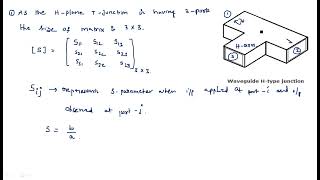 ① As the H-plane T-junction is having 3-ports
the size of matrix is 3 x 3.
[S] = [ S11 S12 S13
S21 S22 S23
S31 S32 S33 ] 3 x 3.
Sij → represents S-parameter when i/p applied at port-i and o/p
observed at port-j.
S = b/a.
H-arm
1
2
3
Waveguide H-type junction